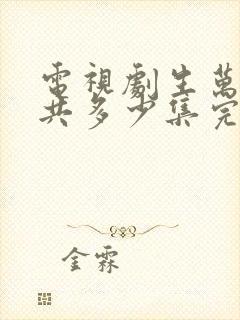 電視劇生萬
共多少集完
金霖